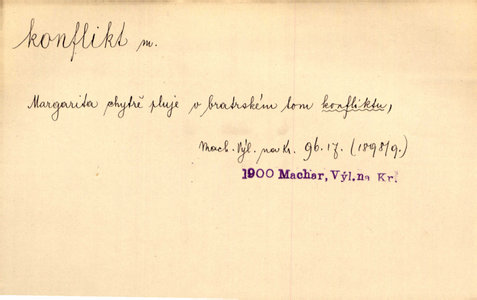 konflikt m.
Margarita chytře pluje v bratrském tom konfliktu,
Mach. Výl. na Kr. 96.17. (1898/9.)
1900 Machar, Výl. na Kr.